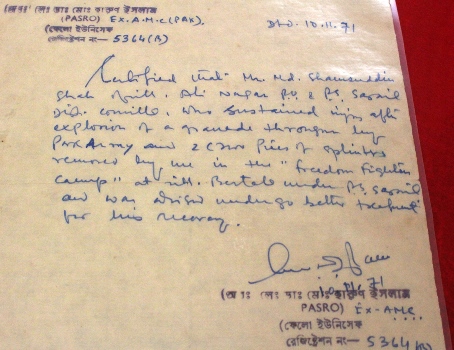 (PASRO) EX-A-M-C (PAK).
(ফেলো ইউনিসেফ
রেজিষ্ট্রেশন নং— 5364(B)
Dtd. 10.11.71
Certified that Mr. Md. Shamsuddin
Shah of vill. Ali Nagar P.O. & P.S. Sarail
Dist. Comilla, who sustained injury after
explosion of a granade thrown by
Pak Army and 2 (Two) Pices of splinters
removed by me in the "Freedom Fighters
Camp" at vill. under P.S. Sarail
and was advised undergo better treatment
for his recovery.
PASRO) EX-AMC.
(ফেলো ইউনিসেফ
রেজিষ্ট্রেশন নং— 5364 (B)